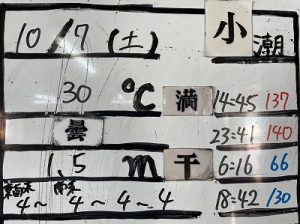 10/7 (土) 小潮
30 ℃ 満 14=45 137
曇 23=41 140
1.5 m 干 6=16 66
18=42 130
4～ 4～4～4